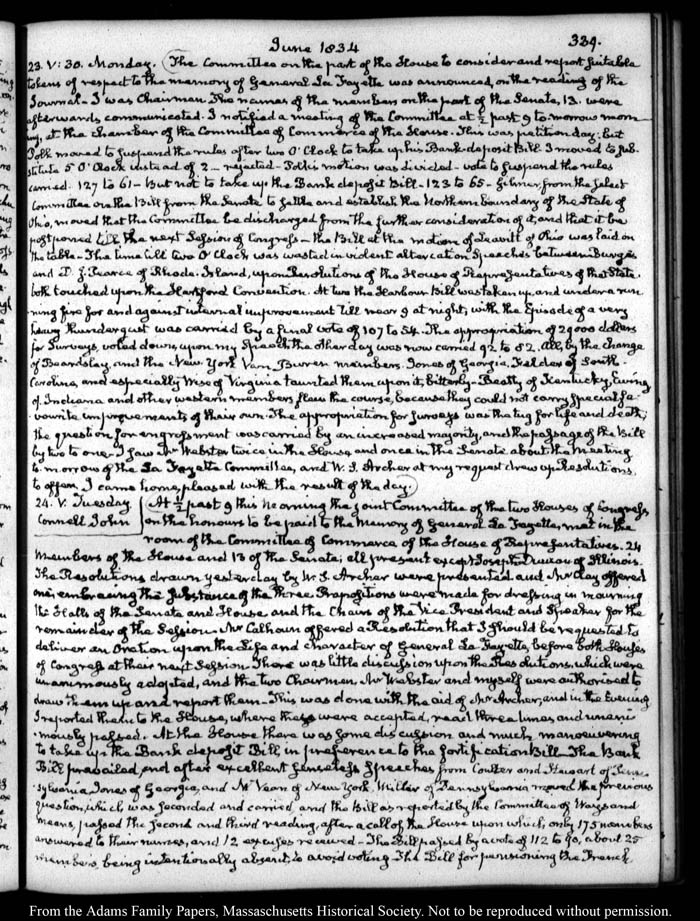 June 1834
339.
23. V: 30. Monday. The Committee on the part of the House to consider and report suitable
tokens of respect to the memory of General La Fayette was announced, on the reading of the
Journal. I was Chairman. The names of the members on the part of the Senate, 13. were
afterwards communicated. I notified a meeting of the Committee at ½ past 9 to morrow morn-
ing, at the chamber of the Committee of Commerce of the House. This was petition day: but
Polk moved to suspend the rules after two O'Clock to take up his Bank-deposit Bill. I moved to sub-
stitute 5 O'Clock instead of 2 — rejected — Polk's motion was divided — vote to suspend the rules
carried. 127 to 61 — But not to take up the Bank deposit Bill — 123 to 65 — Gilmer, from the select
Committee on the Bill from the Senate to settle and establish the Northern boundary of the State of
Ohio, moved that the Committee be discharged from the further consideration of it, and that it be
postponed till the next Session of Congress — the Bill at the motion of Leavitt of Ohio was laid on
the table — The time till two O'Clock was wasted in violent altercation Speeches between Burges
and D. J. Pearce of Rhode-Island, upon Resolutions of the House of Representatives of that State.
both touched upon the Hartford Convention. At two the Harbour Bill was taken up, and under a run-
ning fire for and against internal improvement till near 9 at night, with the Episode of a very
heavy thundergust was carried by a final vote of 107 to 54. The appropriation of 29000 dollars
for Surveys, voted down, upon my Speech the other day was now carried 92 to 82. All, by the change
of Beardslay, and the New York Van Buren members. Jones of Georgia, Felder of South
Carolina, and especially Wise of Virginia taunted them upon it, bitterly. Beatty of Kentucky, Ewing
of Indiana and other western members flew the course, because they could not carry special fa-
vourite improvements of their own. The appropriation for surveys was the tug for life and death;
the question for engrossment was carried by an increased majority, and the passage of the Bill
by two to one. I saw Mr Webster twice in the House and once in the Senate about the meeting
to-morrow of the La Fayette Committee, and W. S. Archer at my request drew up Resolutions
to offer. I came home, pleased with the result of the day.
24. V. Tuesday
Connell John
At ½ past 9 this morning the joint Committee of the two Houses of Congress
on the honours to be paid to the Memory of General La Fayette, met in the
room of the Committee of Commerce of the House of Representatives. 24
Members of the House and 13 of the Senate; all present except Joseph Duncan of Illinois.
The Resolutions drawn yesterday by W. S. Archer were presented and Mr Clay offered
one embracing the substance of the three. Propositions were made for dressing in mourning
the Halls of the Senate and House and the Chairs of the Vice President and Speaker for the
remainder of the Session. Mr Calhoun offered a Resolution that I should be requested to
deliver an Oration upon the Life and character of General La Fayette, before both Houses
of Congress at their next Session. There was little discussion upon the Resolutions which were
unanimously adopted, and the two Chairmen, Mr Webster and myself were authorised to
draw them up and report them — This was done with the aid of Mr Archer, and in the Evening
I reported them to the House, where they were accepted, read three times and unani-
mously passed. At the House there was some discussion and much manoeuvering
to take up the Bank deposit Bill, in preference to the fortification Bill. The Bank
Bill prevailed, and after excellent Speeches from Coulter and Stewart of Penn-
sylvania, Jones of Georgia, and Mc Vean of New York. Miller of Pennsylvania moved the previous
question, which was seconded and carried, and the Bill as reported by the Committee of Ways and
means, passed the second and third reading, after a call of the House upon which, only 175 members
answered to their names, and 12 excuses received — The Bill passed by a vote of 112 to 90, about 25
members, being intentionally absent, to avoid voting. The Bill for pensioning the French
From the Adams Family Papers, Massachusetts Historical Society. Not to be reproduced without permission.